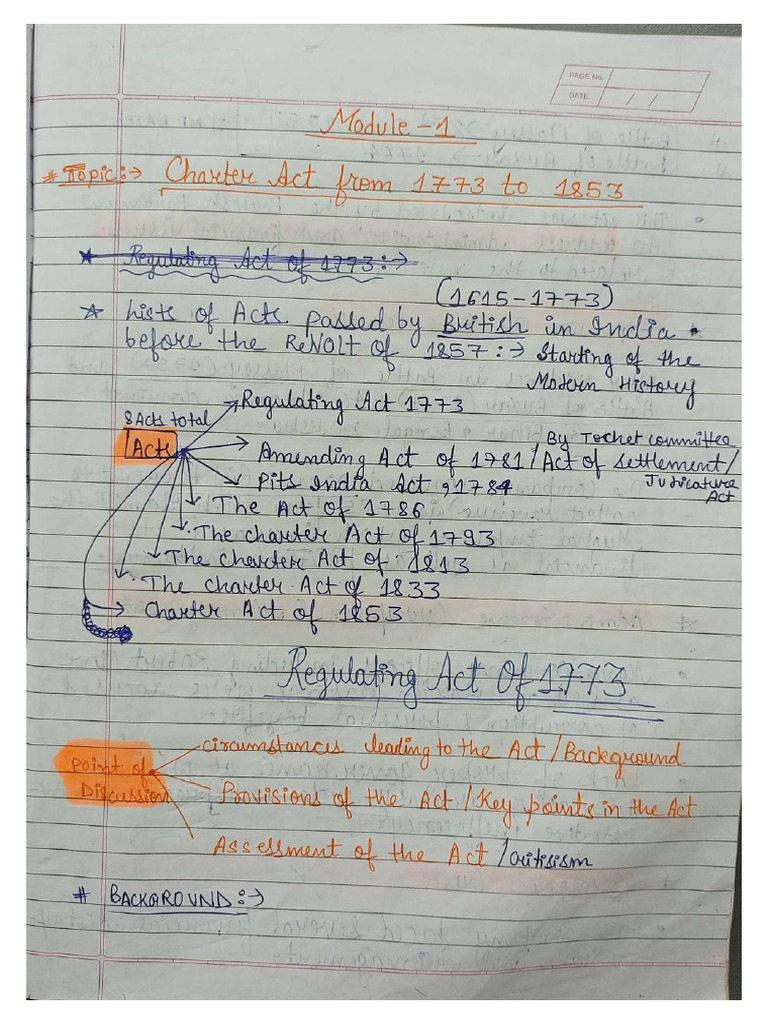 PAGE No.
DATE / /
Module - 1
# Topic :→ Charter Act from 1773 to 1853
* Regulating Act of 1773 :→
(1615 - 1773)
* Lists of Acts passed by British in India
before the ReVOlT of 1857 :→ Starting of the
Modern History
8 Acts total
Acts
Regulating Act 1773
Amending Act of 1781 / Act of Settlement /
By Tochet committee
Judicature Act
Pits India Act, 1784
The Act of 1786
The charter Act of 1793
The charter Act of 1813
The charter Act of 1833
Charter Act of 1853
Regulating Act Of 1773
Point of
Discussion
circumstances leading to the Act / Background
Provisions of the Act / Key points in the Act
Assessment of the Act / critisism
# BACKAROUND :→